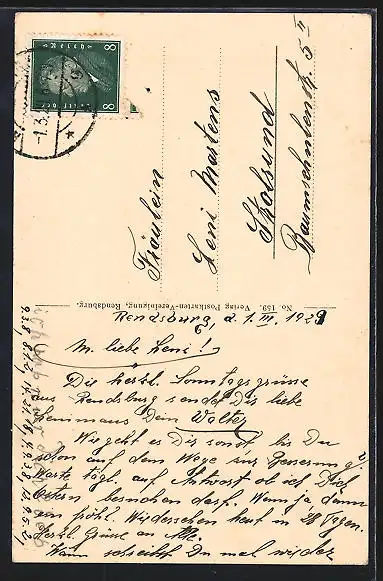 Fräulein
Leni Martens
Stralsund
Baumschulenstr. 5 II
No. 159. Verlag Postkarten-Vereinigung, Rendsburg.
Rendsburg, d. 1. III. 1929
M. liebe Leni!
Die herzl. Sonntagsgrüsse
aus Rendsburg sendet Dir liebe
Dein Walter
Wie geht es Dir sonst bis Du
schon auf dem Wege zur Besserung?
Warte tägl. auf Antwort ob ich Dich
Ostern besuchen darf. Wenn ja dann
ein fröhl. Wiedersehen heut in 28 Tagen.
Herzl. Grüsse an Alle.
Wann schreibst Du mal wieder
8
8